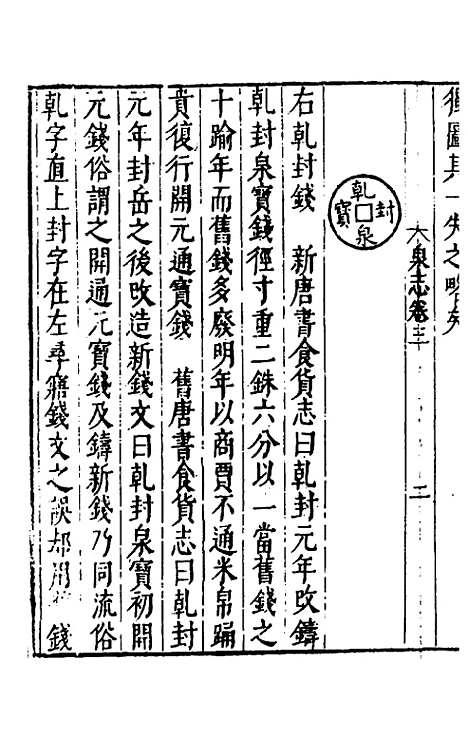 圖其一失之略矣
泉志卷三 二
乹封泉寶
右乹封錢 新唐書食貨志曰乹封元年改鑄
乹封泉寶錢徑寸重二銖六分以一當舊錢之
十踰年而舊錢多廢明年以商賈不通米帛踊
貴復行開元通寶錢 舊唐書食貨志曰乹封
元年封岳之後改造新錢文曰乹封泉寶初開
元錢俗謂之開通元寶錢及鑄新錢乃同流俗
乹字直上封字在左尋寤錢文之誤 錢